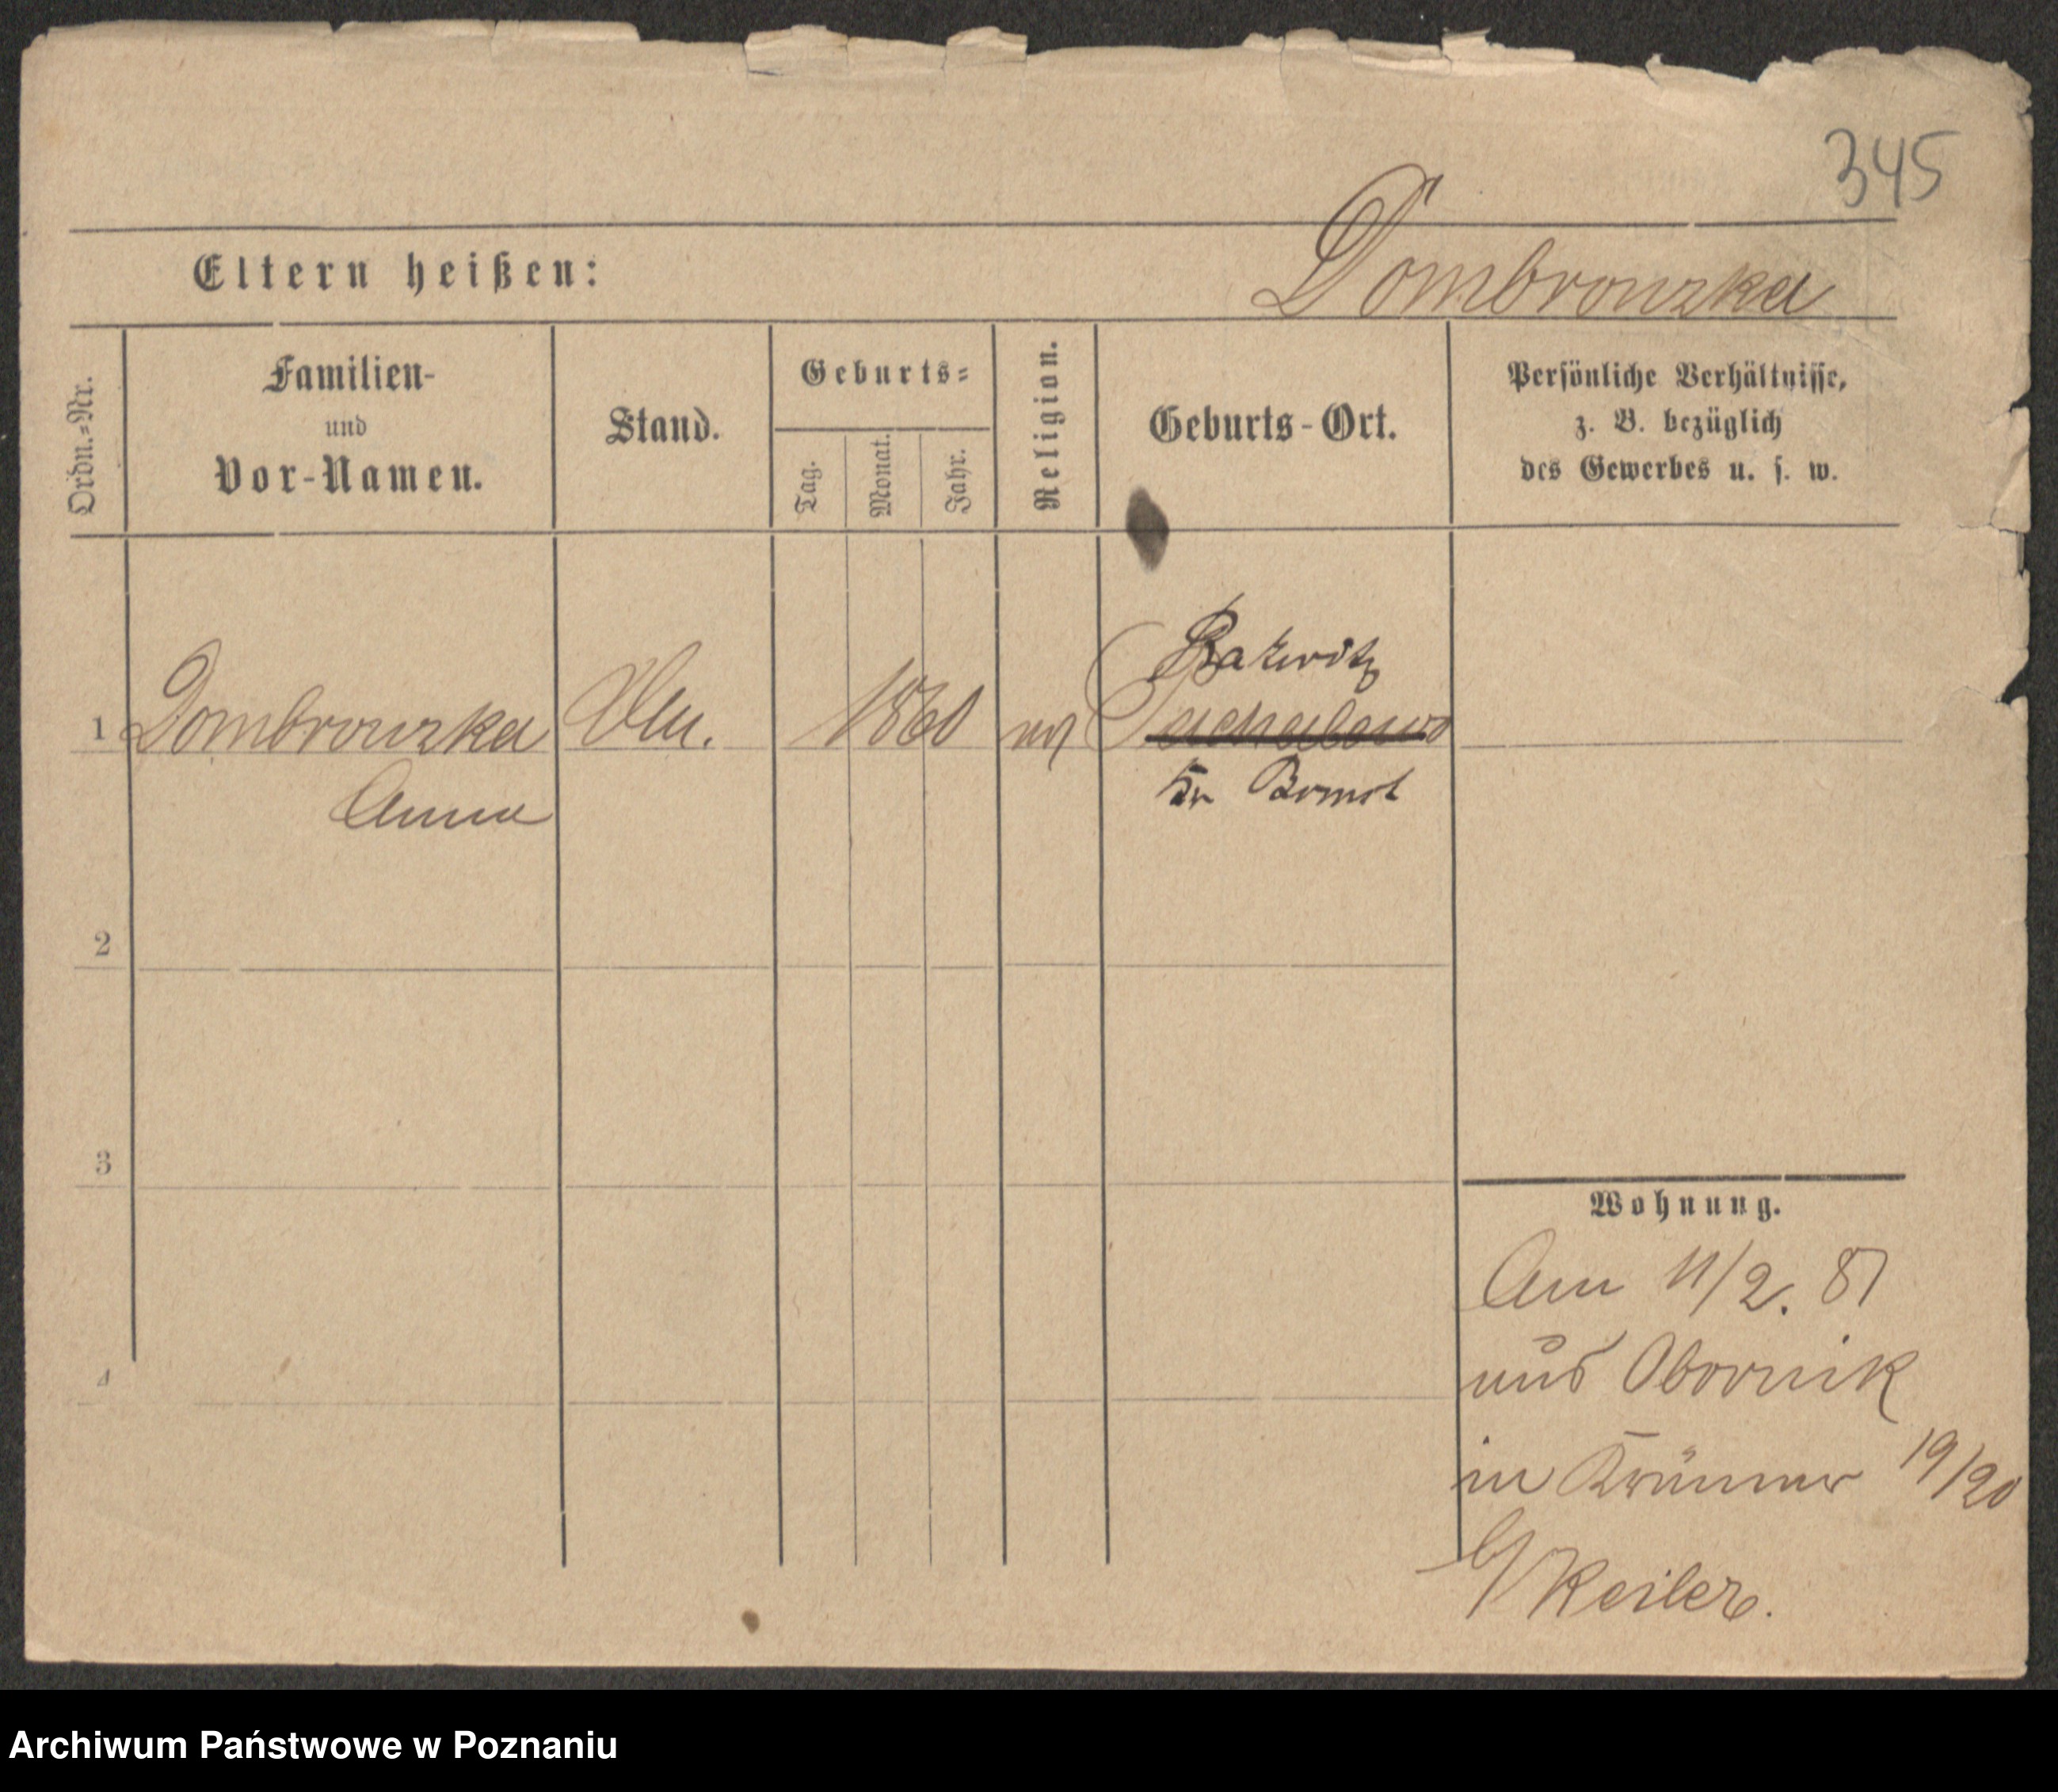 345
Eltern heißen:
Dombrowska
Ordn.=Nr.
Familien-
und
Vor-Namen.
Stand.
Geburts=
Tag.
Monat.
Jahr.
Religion.
Geburts-Ort.
Persönliche Verhältnisse,
z. B. bezüglich
des Gewerbes u. s. w.
Rakwitz
1 Dombrowska 1860
Kr Bomst
Anna
2
3
4
Wohnung.
Am 11/2. 81
aus Obornik
in Krämer 19/20
b/ Keiler.
Archiwum Państwowe w Poznaniu